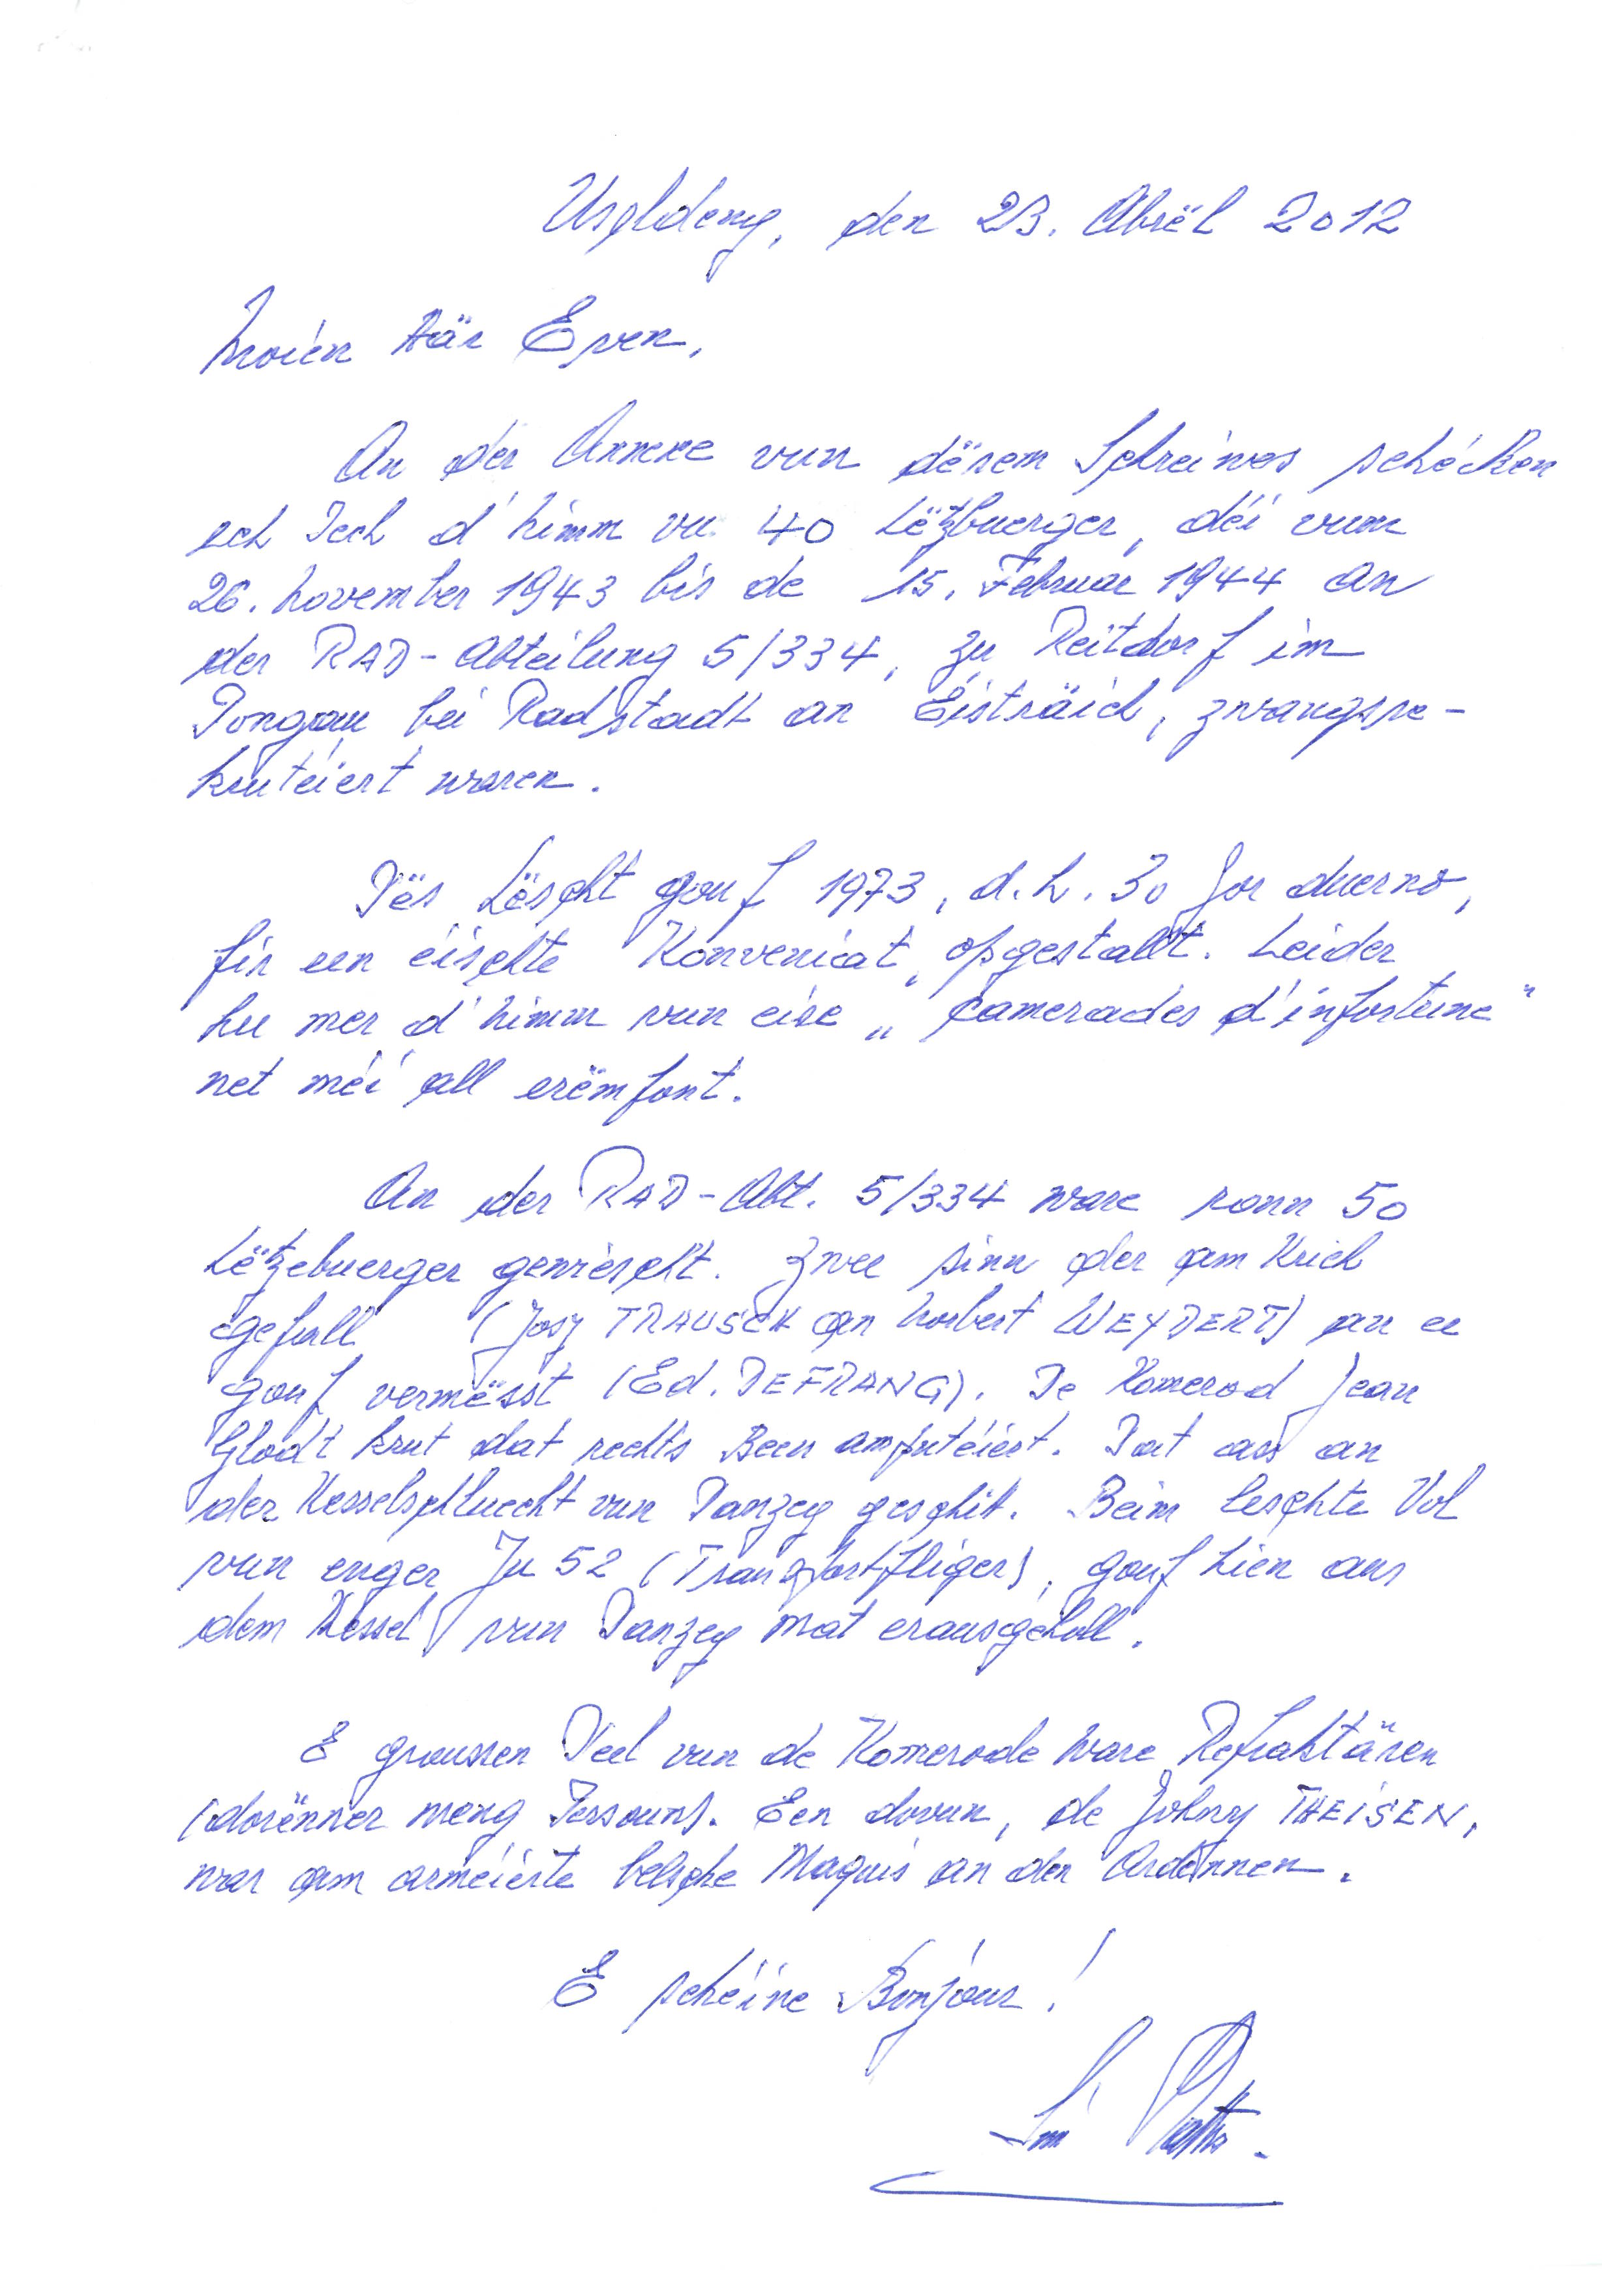 Useldeng, den 23. Abrëll 2012
Moien Här Even,
An der Annexe vun dësem Schreiwes schécken
ech Iech d'Nimm vu 40 Lëtzbuerger, déi vum
26. November 1943 bis de 15. Februar 1944 an
der RAD-Abteilung 5/334, zu Reitdorf im
Pongau bei Radstadt an Éisträich, zwangsre-
krutéiert waren.
Dës Lëscht gouf 1973, d.h. 30 Jor duerno,
fir een éischte Konveniat, opgestallt. Leider
hu mer d'Nimm vun eise „camerades d'infortune"
net méi all erëmfont.
An der RAD-Abt. 5/334 ware ronn 50
Lëtzebuerger gewiescht. Zwee sinn der am Krich
gefall (Josy TRAUSCH an Norbert WEYDERT) an ee
gouf vermësst (Ed. DEFRANG). De Komerod Jean
Glodt krut dat rechts Been amputéiert. Dat ass an
der Kesselschluecht vun Danzeg geschitt. Beim leschte Vol
vun enger Ju 52 (Transportfliger), gouf hien aus
dem Kessel vun Danzeg mat erausgeholl.
E groussen Deel vun de Komerode ware Refraktären
(dorënner meng Persoun). Een dovun, de Johny THEISEN,
war am arméierte belsche Maquis an den Ardennen.
E schéine Bonjour!